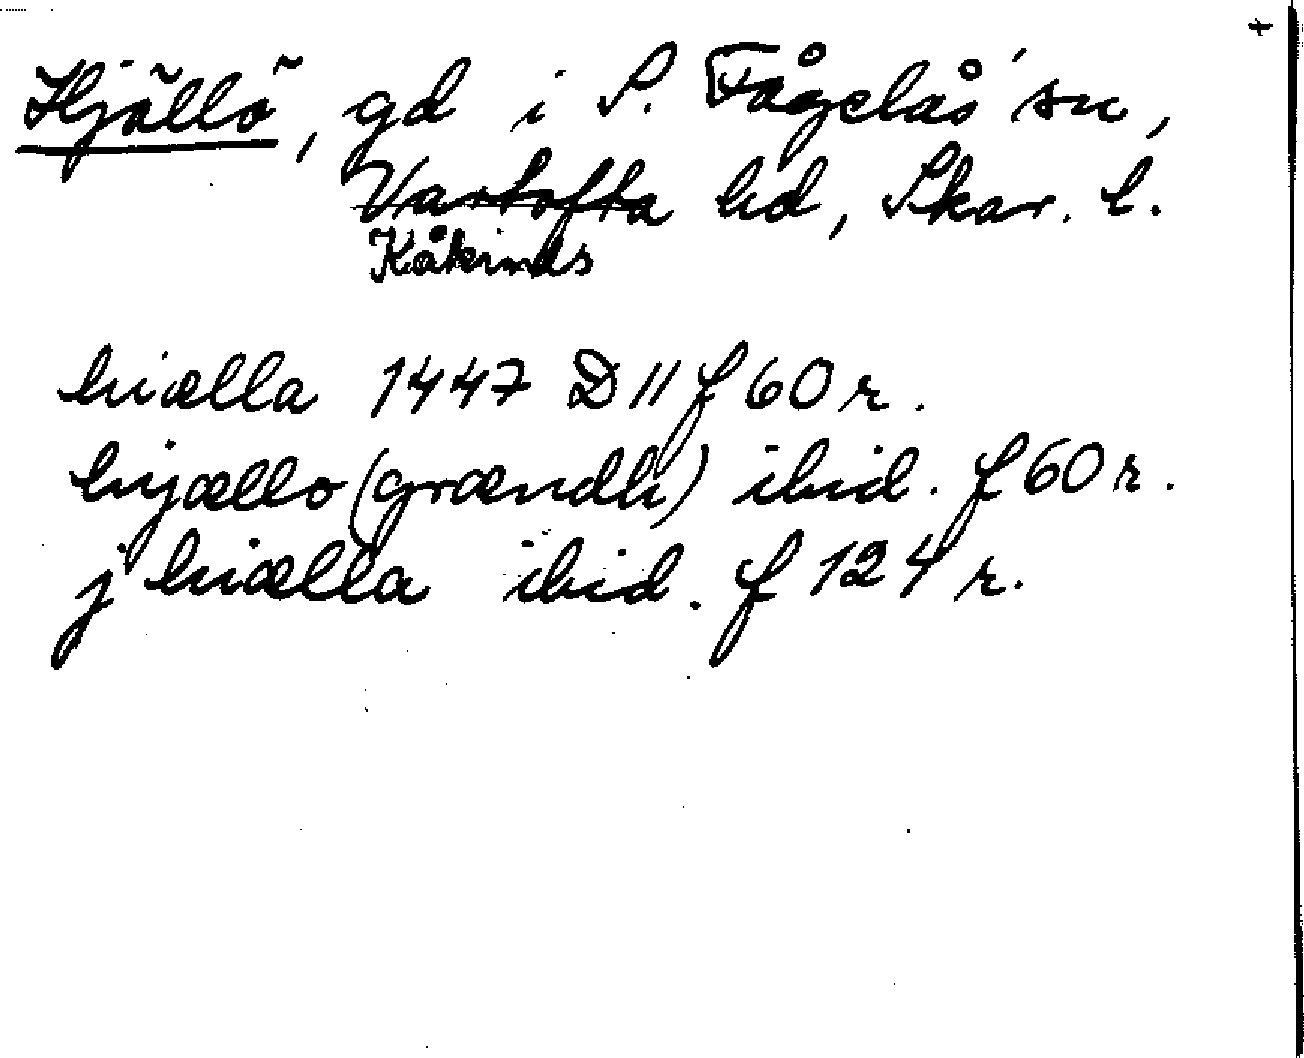 +
Hjällö, gd i S. Fågelås sn,
Vartofta hd, Skar. l.
Kåkinds
hiælla 1447 D 11 f 60 r.
hijællo (grændh) ibid. f 60 r.
j hiælla ibid. f 124 r.